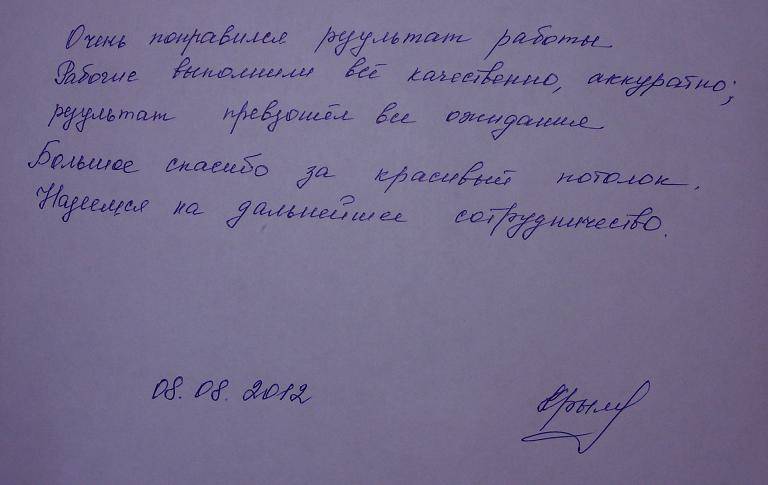 Очень понравился результат работы
Рабочие выполнили всё качественно, аккуратно;
результат превзошёл все ожидания
Большое спасибо за красивый потолок.
Надеемся на дальнейшее сотрудничество.
08.08.2012